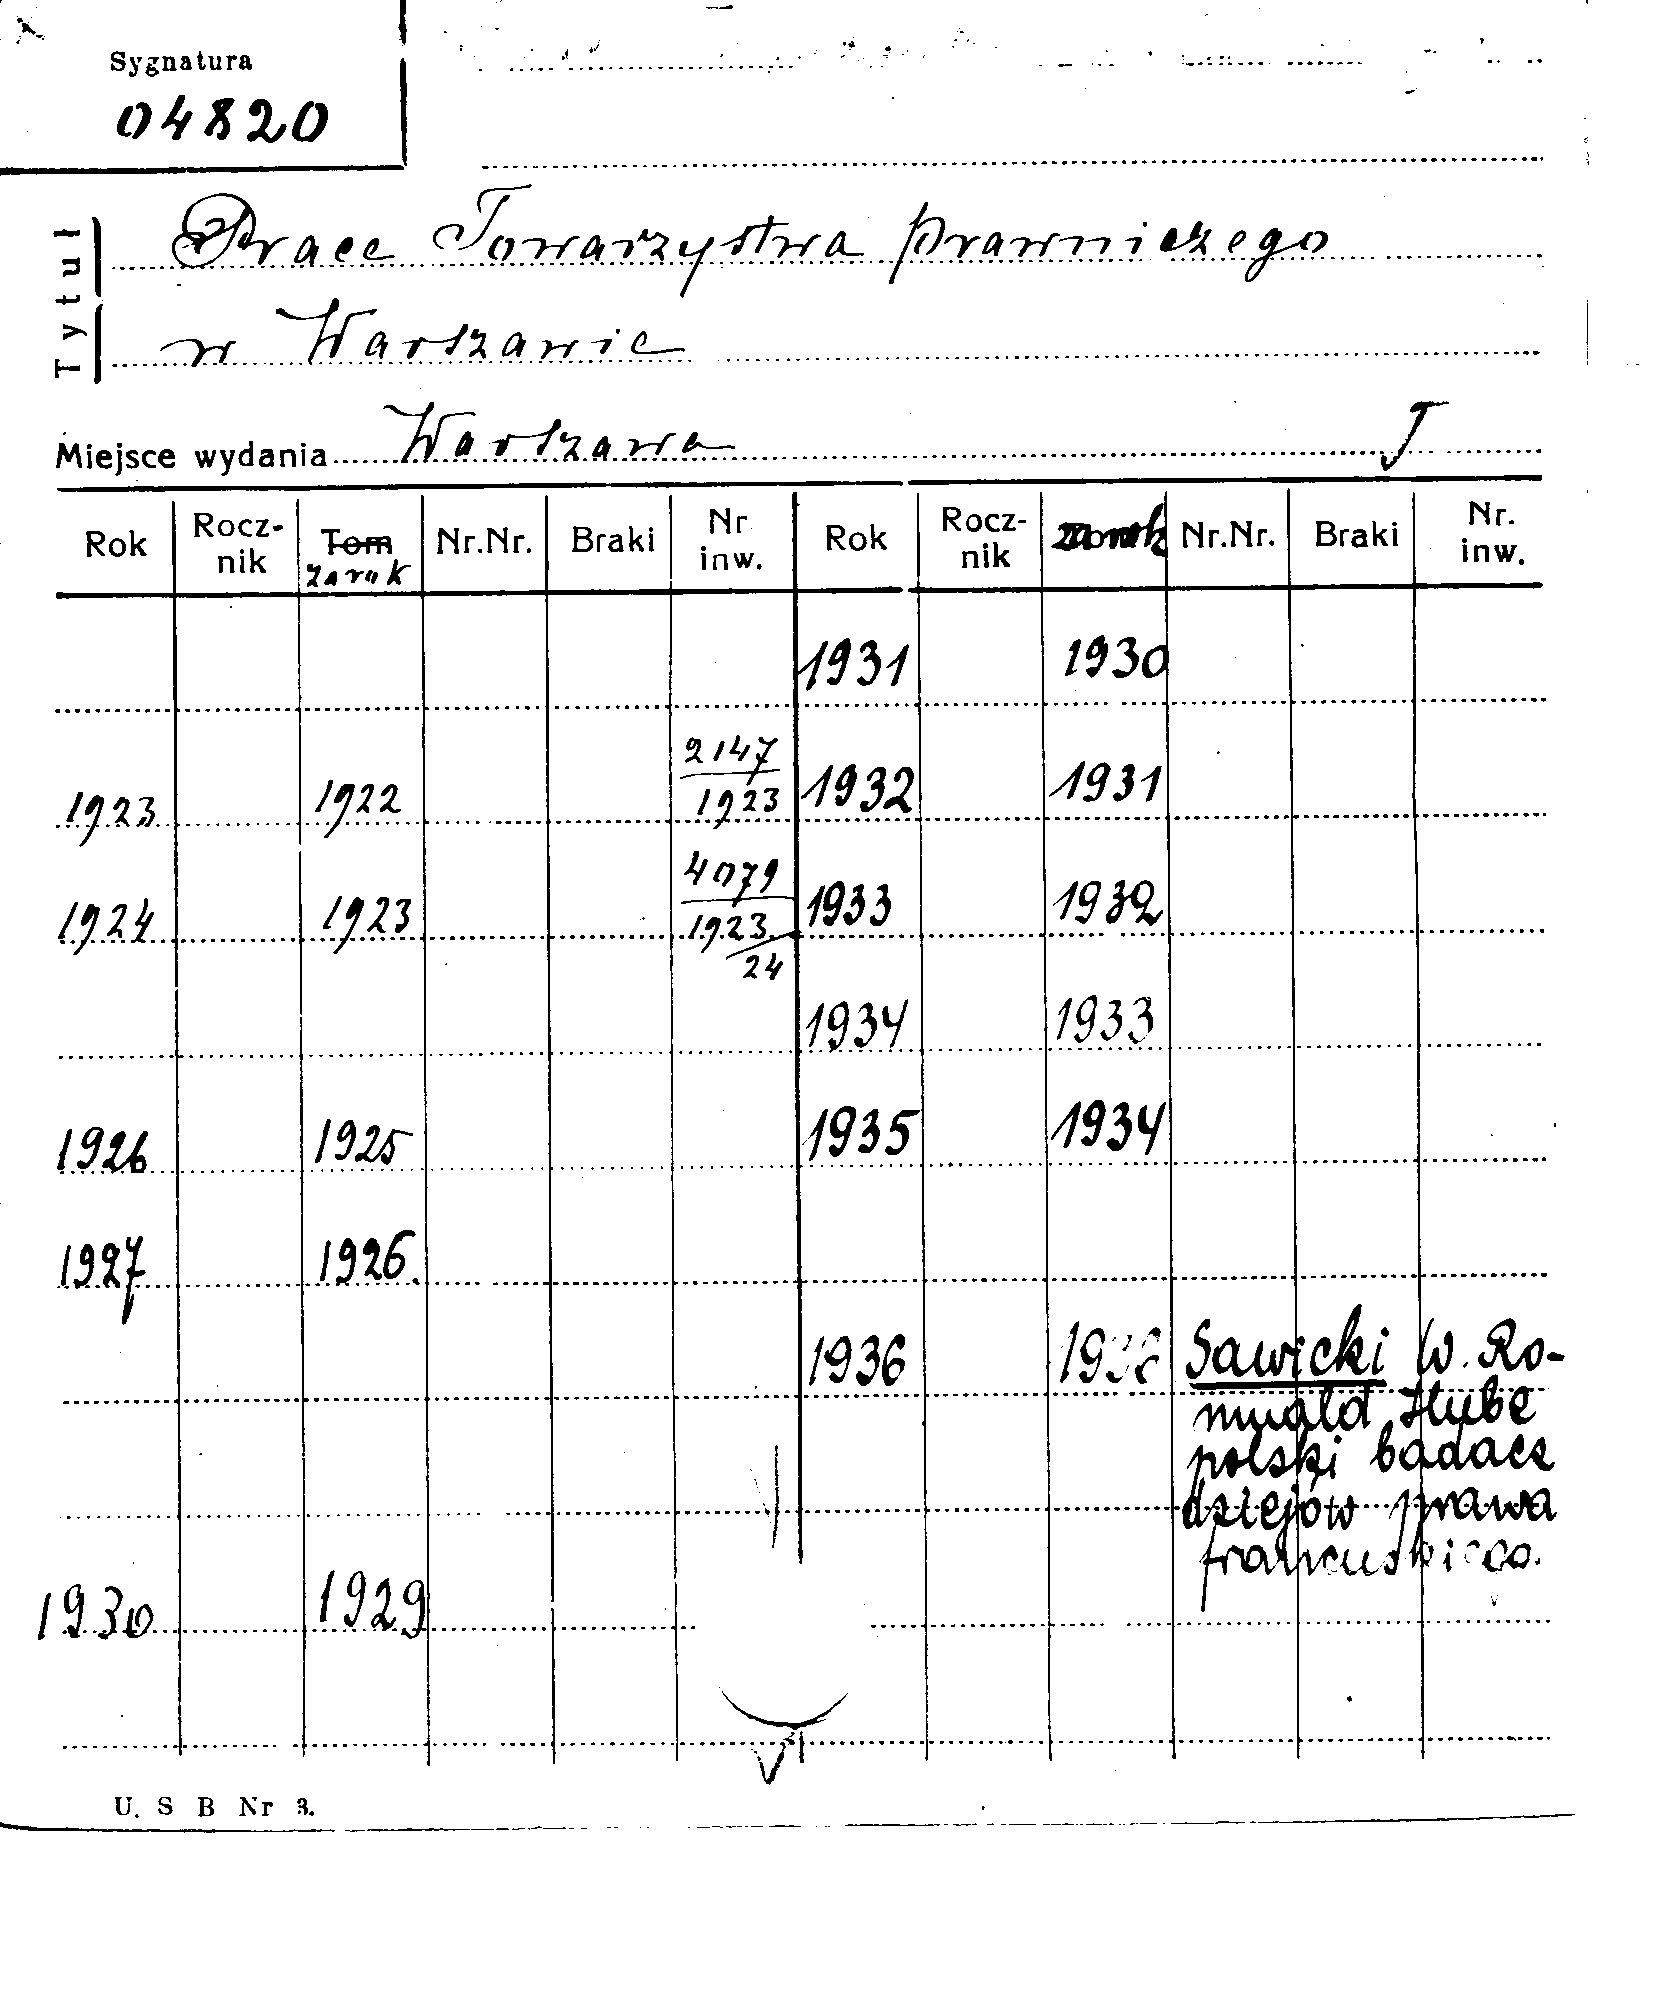 Sygnatura
04820
Tytuł
Prace Towarzystwa Prawniczego
w Warszawie
Miejsce wydania Warszawa J
Rok Rocz-nik Tom za rok Nr.Nr. Braki Nr inw. Rok Rocz-nik za rok Nr.Nr. Braki Nr. inw.
1931 1930
1923 1922 2147/1923 1932 1931
1924 1923 4079/1923/24 1933 1932
1934 1933
1926 1925 1935 1934
1927 1926.
1936 Sawicki W. Ro-
muald Hube
polski badacz
dziejów prawa
francuskiego.
1930 1929
U. S B Nr 3.